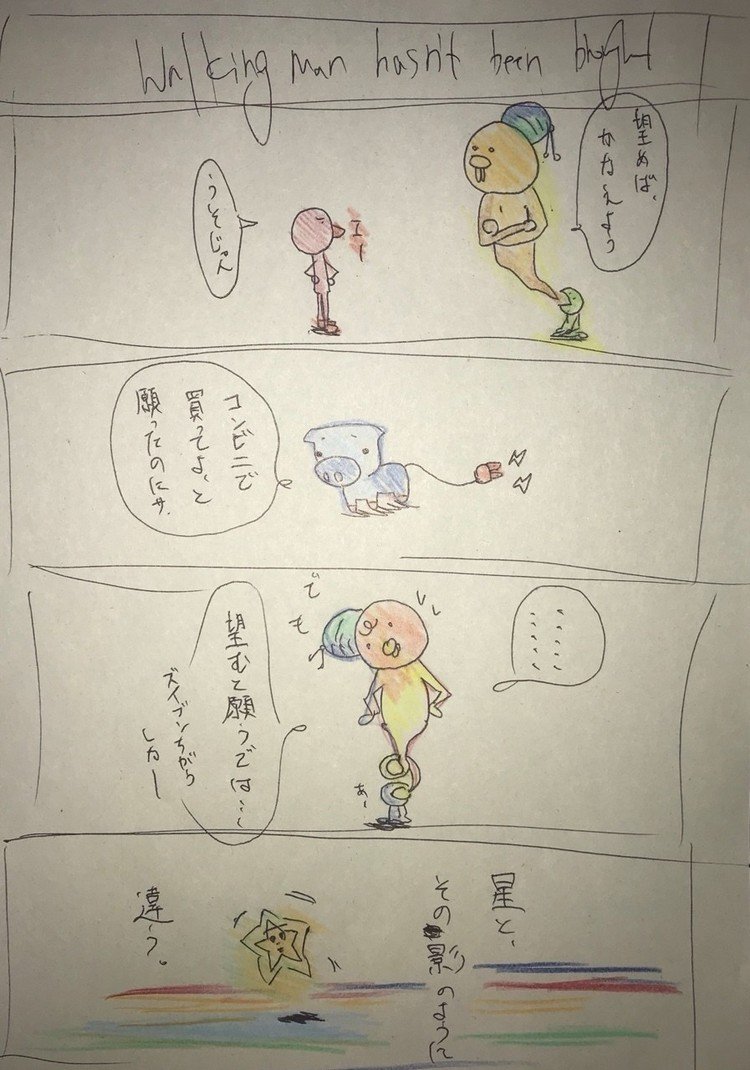 Walking man hasn't been bought
望めば、
かなえよう
うそじゃん
エー
コンビニで
買ってよ、と
願ったのにサ、
・・・・・
・・・・・
でも
望むと願うでは・・・
ズイブンちがら
しカー
あー
星と、
その影のように
違う。